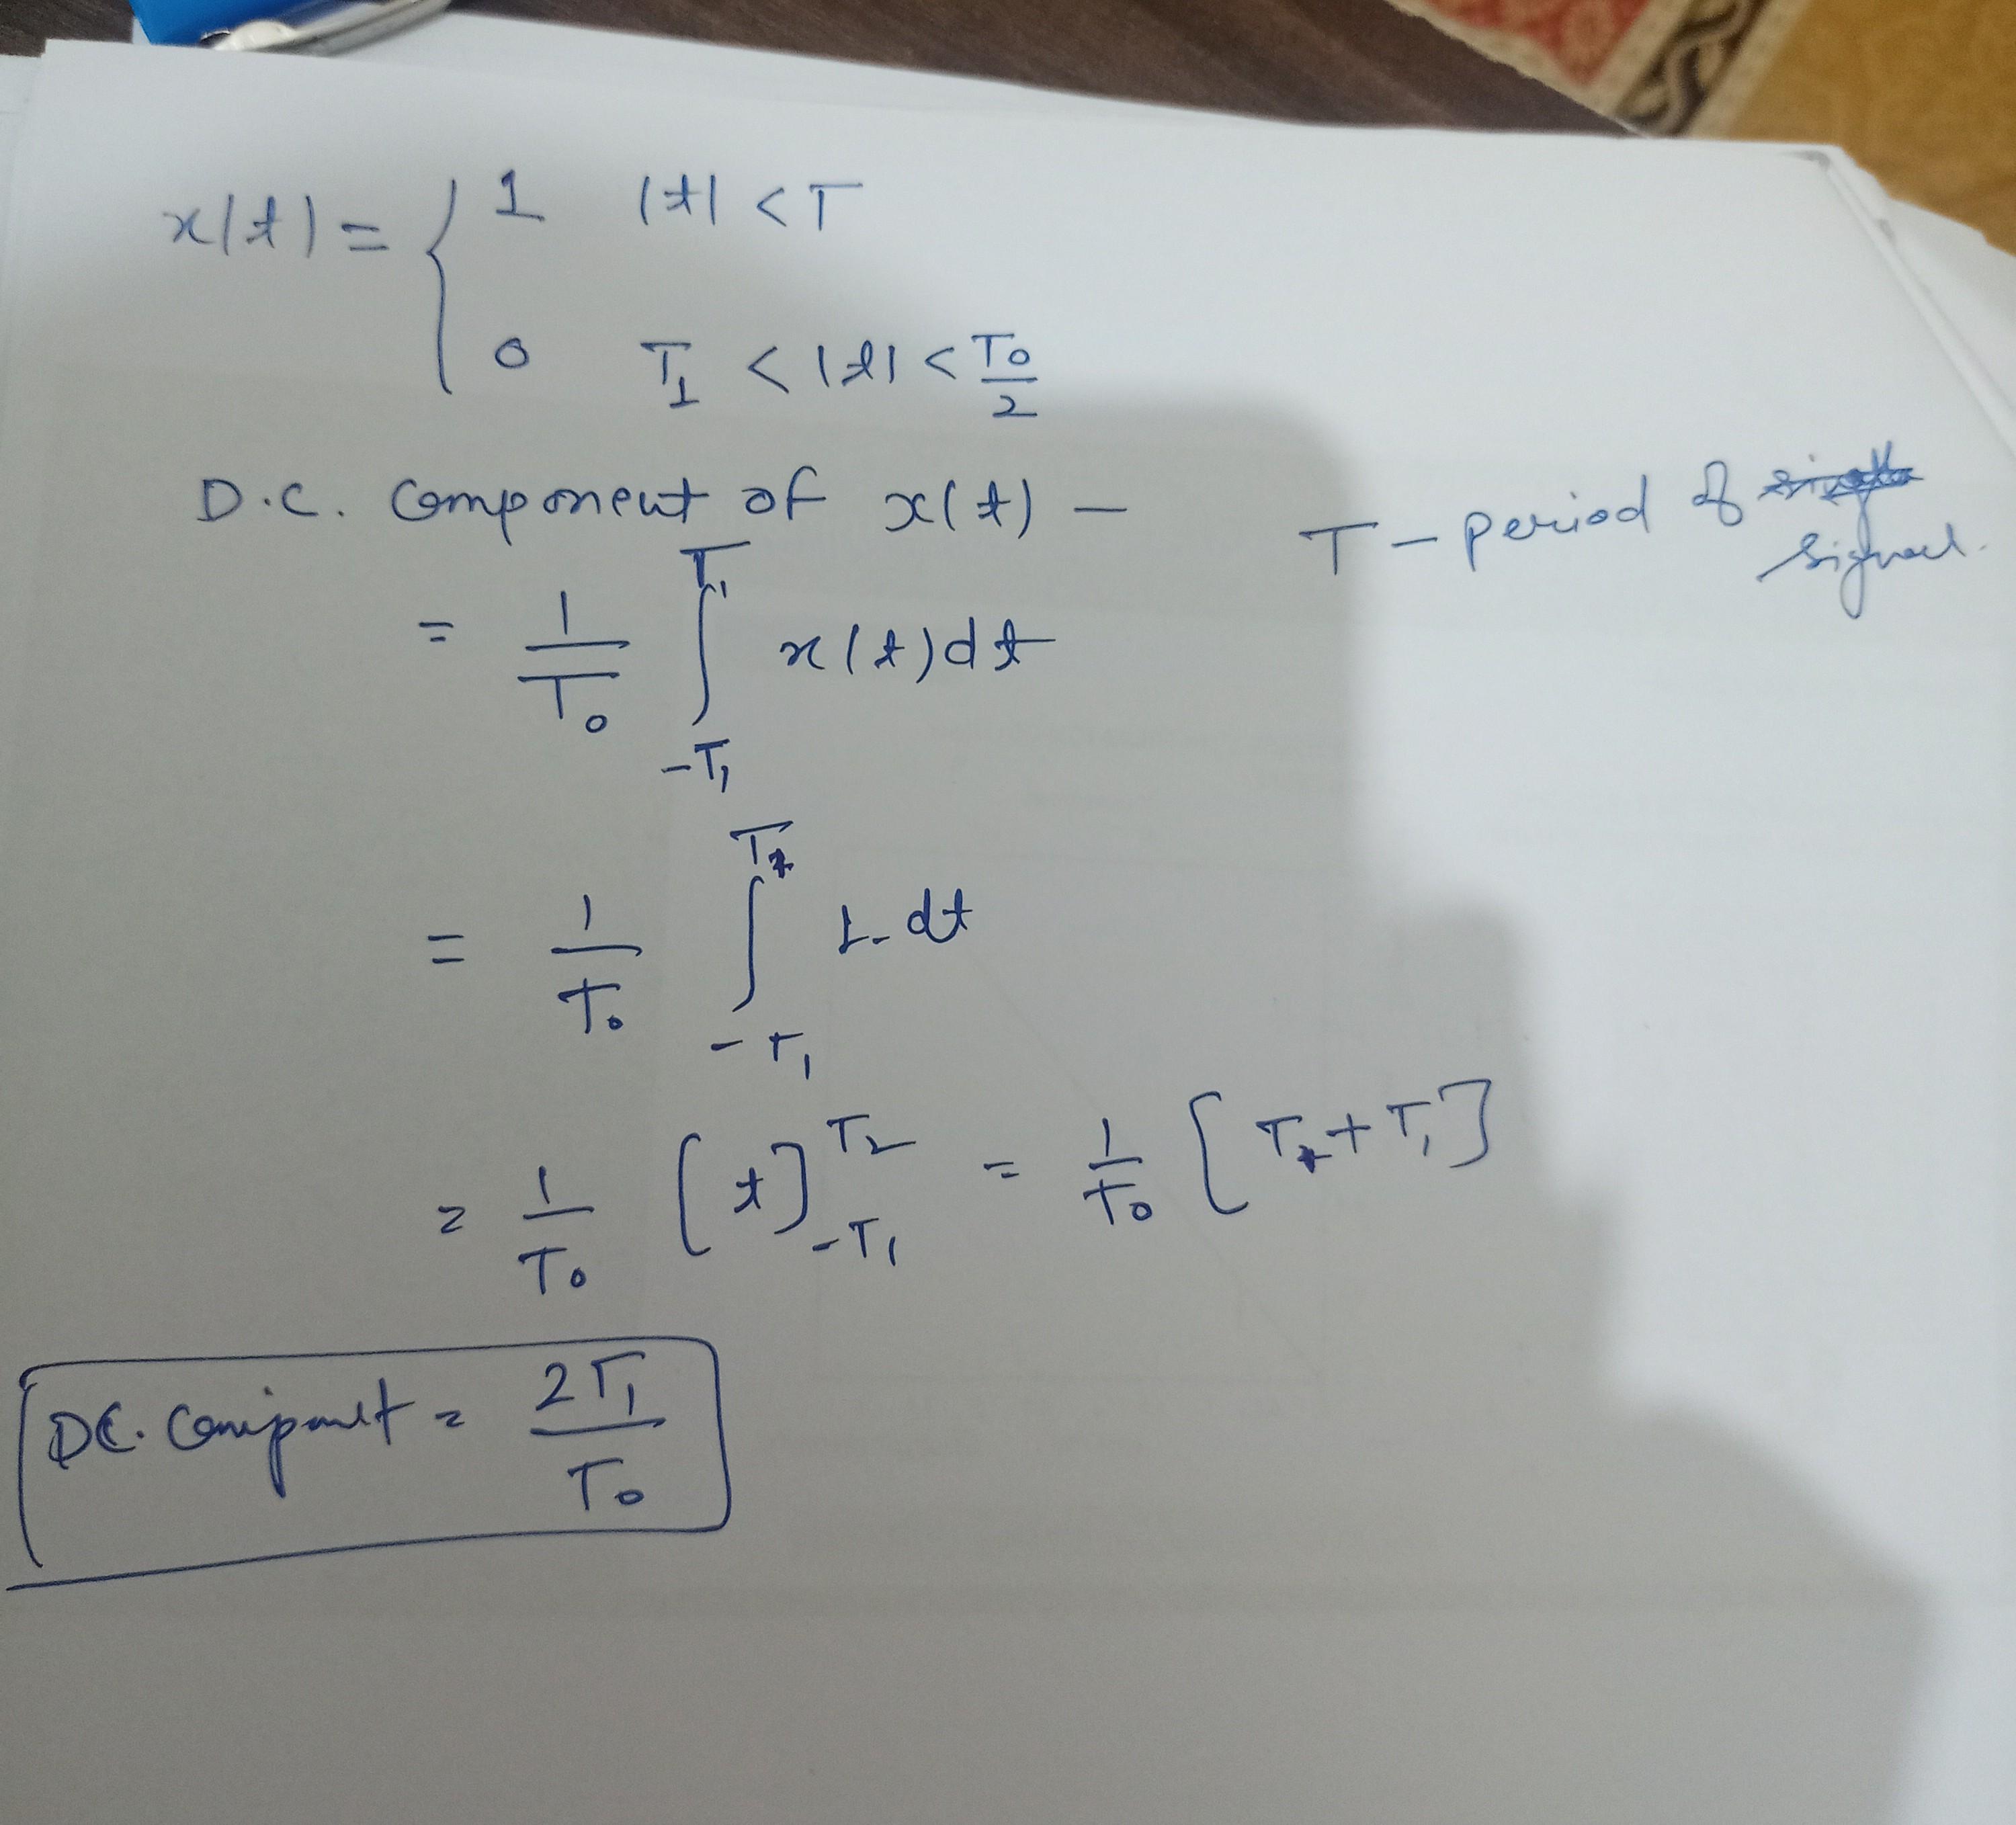 x(t) = { 1 |t| < T
0 T1 < |t| < T0/2
D.C. Component of x(t) —
T – period of signal.
= 1/T0 ∫_{-T1}^{T1} x(t)dt
= 1/T0 ∫_{-T1}^{T1} 1. dt
= 1/T0 [t]_{-T1}^{T2} = 1/T0 [T1+T1]
DC. Component = 2T1/T0